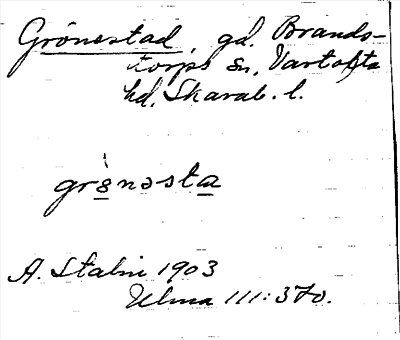 Grönestad, gd. Brands-
torps sn, Vartofta
hd, Skarab. l.
grònəsta
A. Stalin 1903
Ulma 111:370.